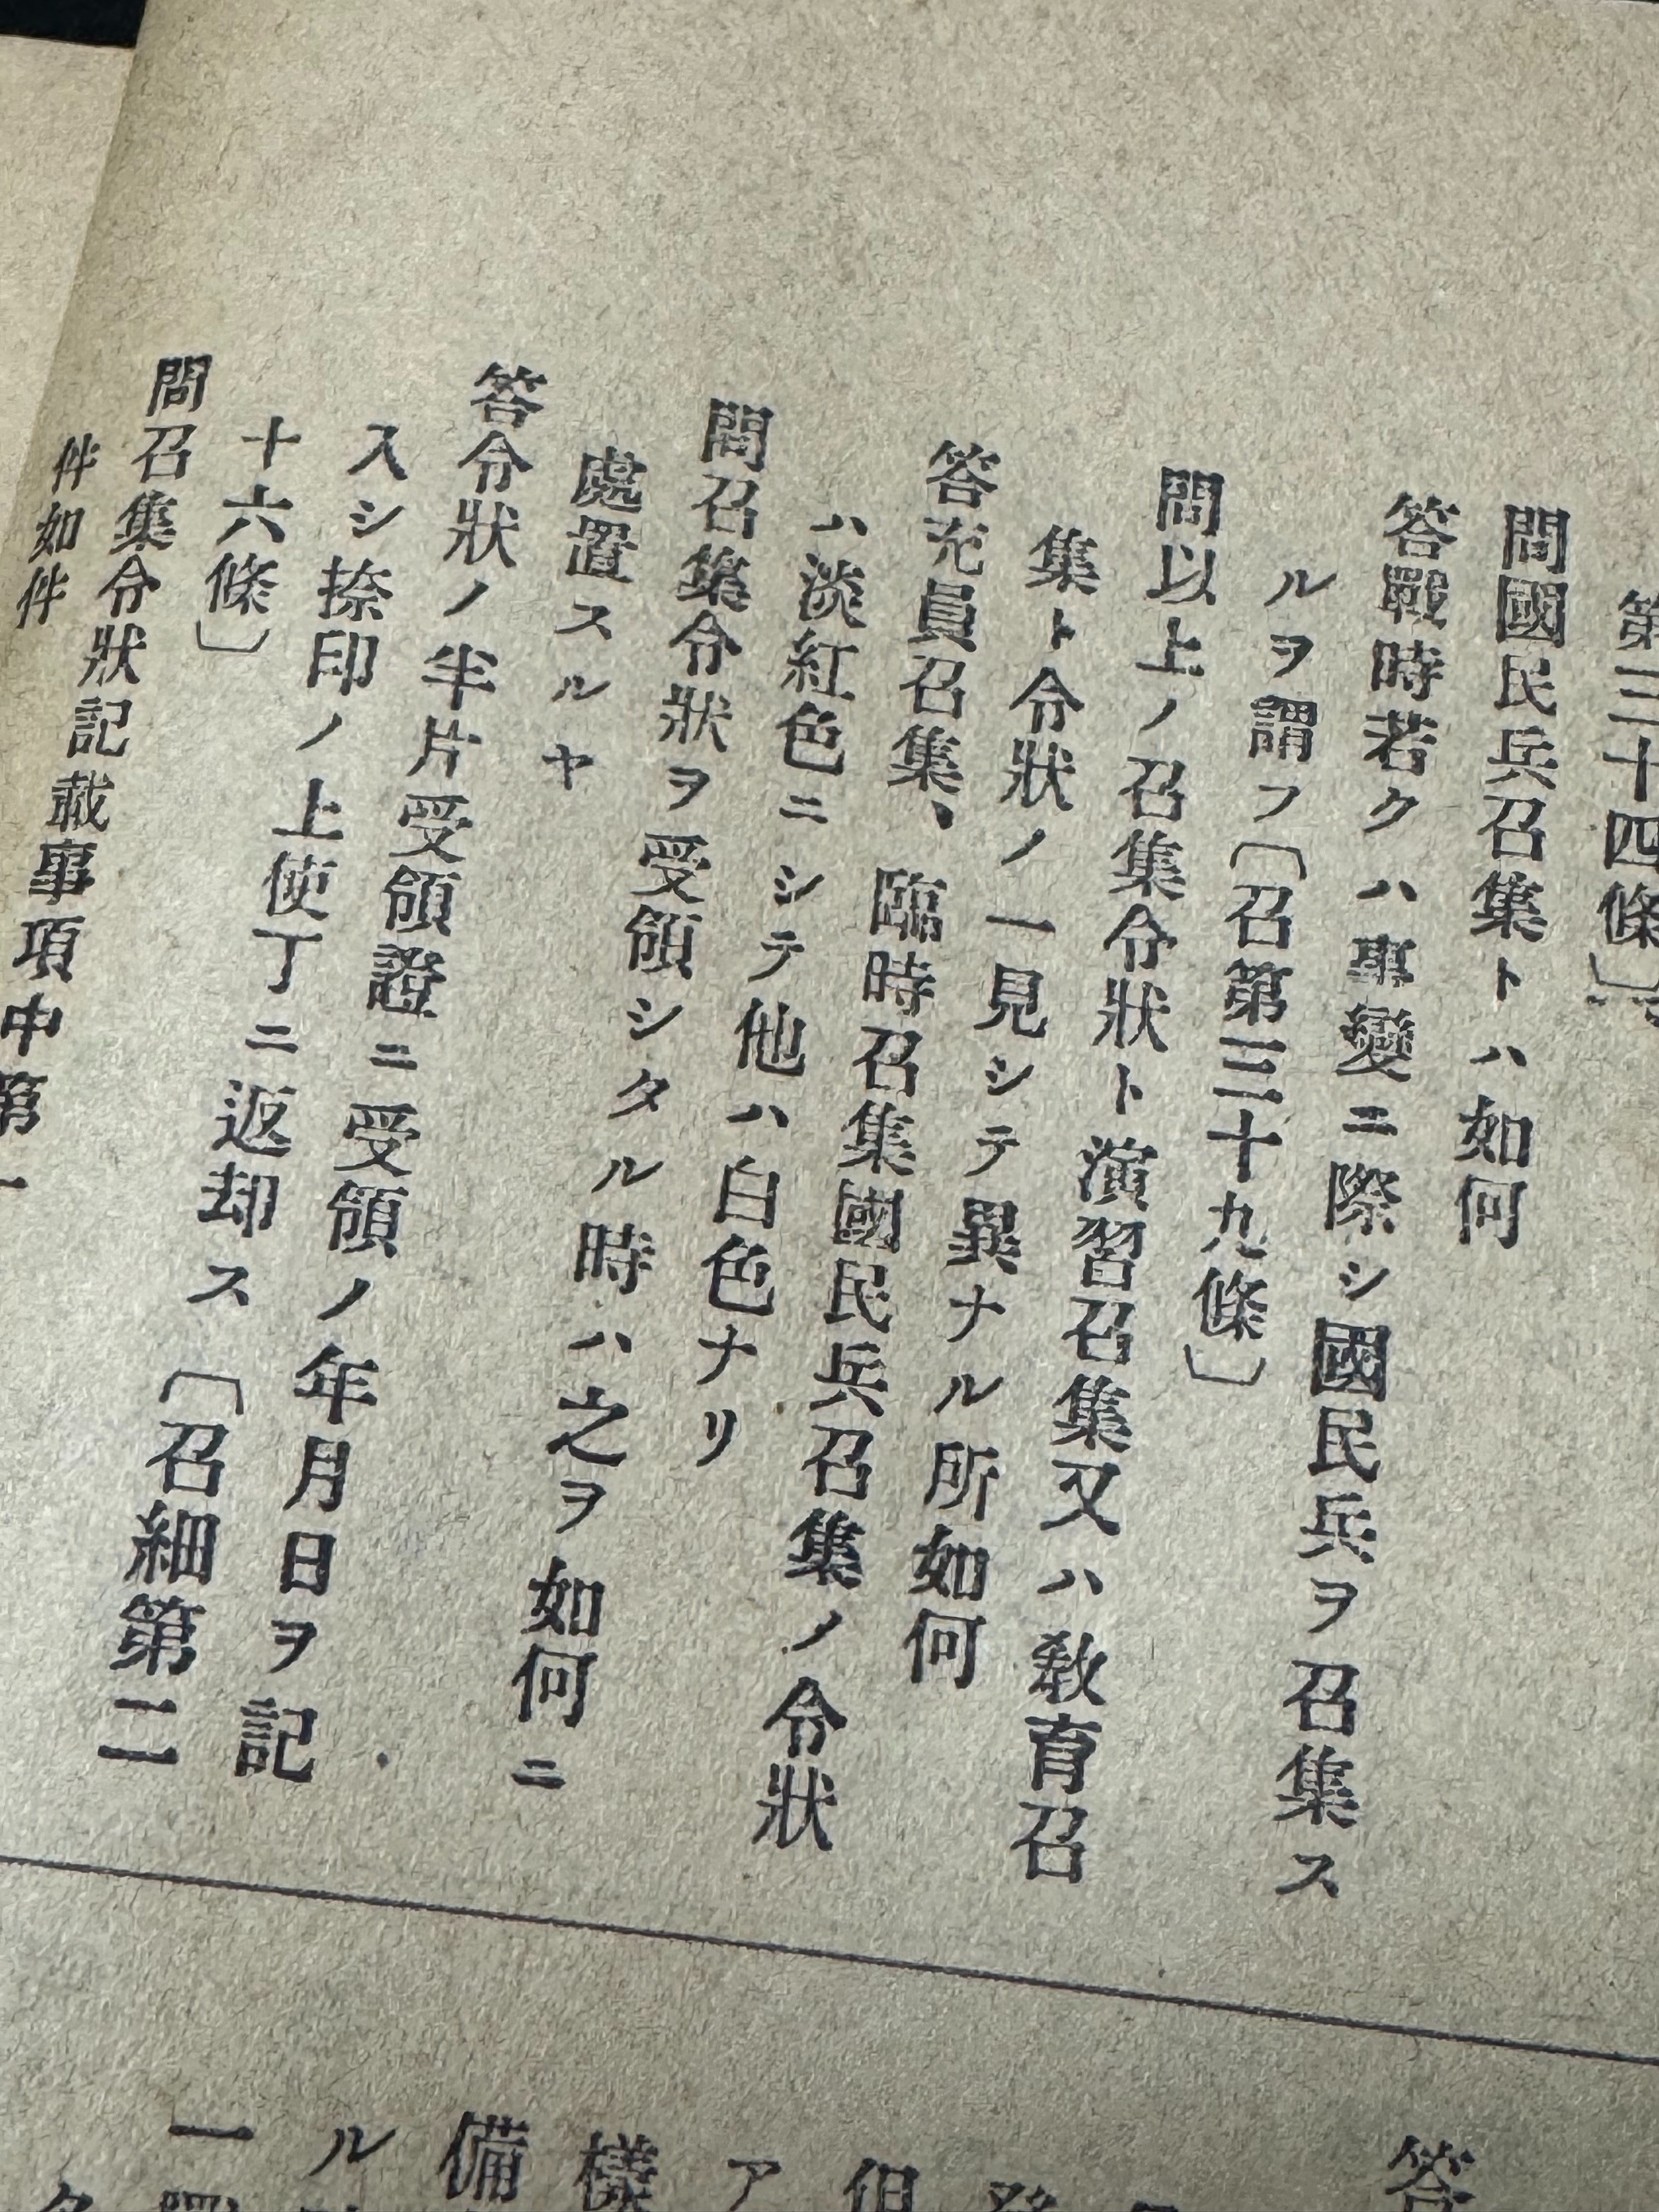 第三十四條〕
問國民兵召集トハ如何
答戰時若クハ事變ニ際シ國民兵ヲ召集ス
ルヲ謂フ〔召第三十九條〕
問以上ノ召集令狀ト演習召集又ハ敎育召
集ト令狀ノ一見シテ異ナル所如何
答充員召集、臨時召集國民兵召集ノ令狀
ハ淡紅色ニシテ他ハ白色ナリ
問召集令狀ヲ受領シタル時ハ之ヲ如何ニ
處置スルヤ
答令狀ノ半片受領證ニ受領ノ年月日ヲ記
入シ捺印ノ上使丁ニ返却ス〔召細第二
十六條〕
問召集令狀記載事項中第一
件如件
答
但
ア
樣
備
ル
一